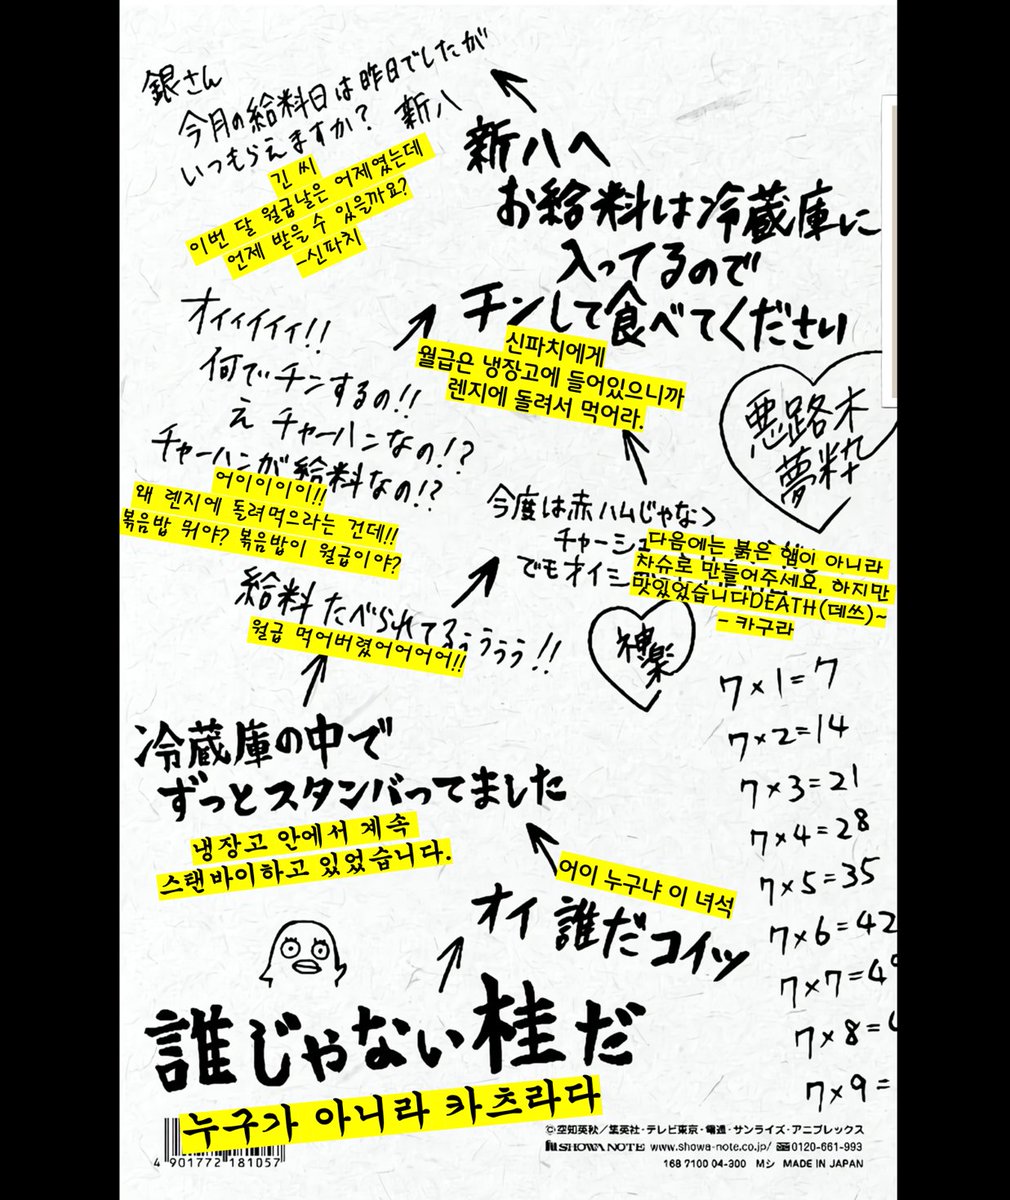 銀さん
今月の給料日は昨日でしたが
いつもらえますか? 新八
긴 씨
이번 달 월급날은 어제였는데
언제 받을 수 있을까요?
-신파치
新八へ
お給料は冷蔵庫に
入ってるので
チンして食べてください
신파치에게
월급은 냉장고에 들어있으니까
렌지에 돌려서 먹어라.
オイィイィィ!!
何でチンするの!!
え チャーハンなの!?
チャーハンが給料なの!?
어이이이이!!
왜 렌지에 돌려먹으라는 건데!!
볶음밥 뭐야? 볶음밥이 월급이야?
悪路木
夢粋
今度は赤ハムじゃなく
チャーシュ
でもオイシ
다음에는 붉은 햄이 아니라
차슈로 만들어주세요, 하지만
맛있었습니다DEATH(데쓰)~
- 카구라
神楽
給料たべられてるぅぅぅぅ!!
월급 먹어버렸어어어어!!
冷蔵庫の中で
ずっとスタンバってました
냉장고 안에서 계속
스탠바이하고 있었습니다.
어이 누구냐 이 녀석
オイ 誰だコイツ
誰じゃない桂だ
누구가 아니라 카츠라다
7×1=7
7×2=14
7×3=21
7×4=28
7×5=35
7×6=42
7×7=4
7×8=
7×9=
4 901772 181057
©空知英秋/集英社・テレビ東京・電通・サンライズ・アニプレックス
SHOWA NOTE www.showa-note.co.jp/ 0120-661-993
168 7100 04-300 Mシ MADE IN JAPAN